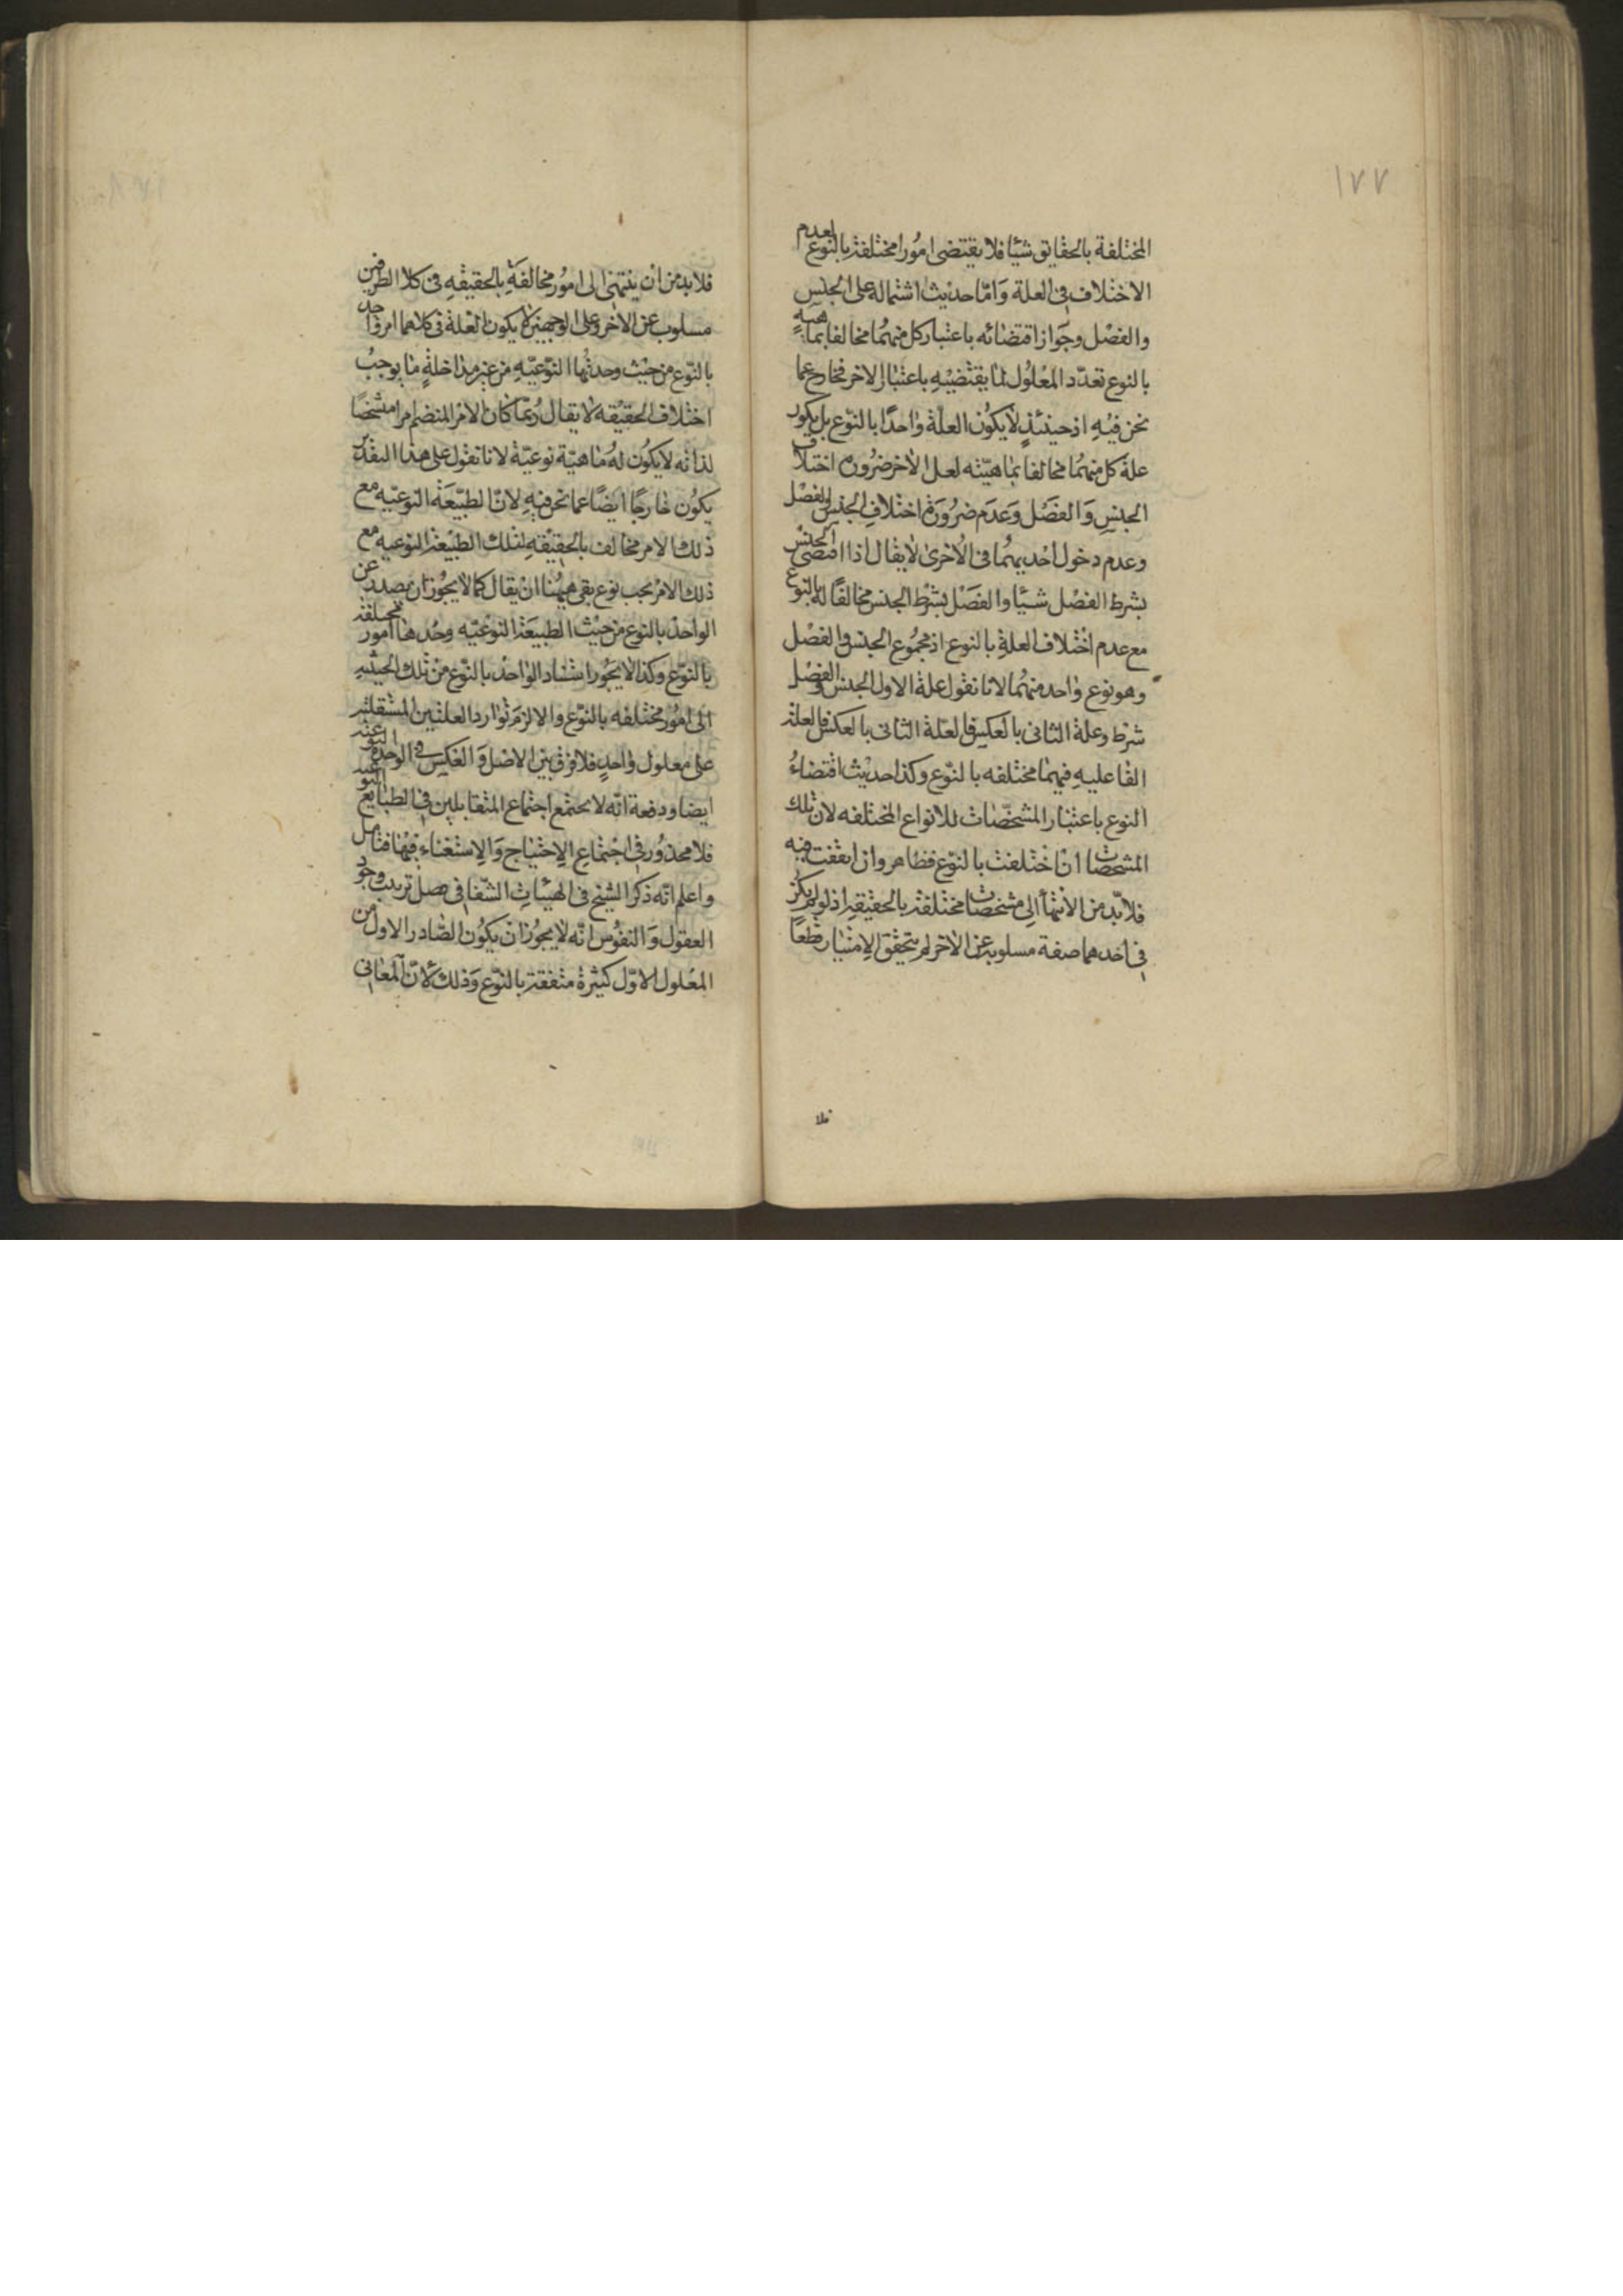 ١٧٧
المختلفة بالحقايق شيئا فلا يقتضى امورا مختلفة بالنوع لعدم
الاختلاف فى العلة واما حديث اشتماله على الجنس
والفصل وجواز اقتضائه باعتبار كل منهما مخالفا بماهيته
بالنوع تعدد المعلول لما يقتضيه باعتبار الاخر فخارج عما
نحن فيه اذ حينئذ لا يكون العلة واحدا بالنوع بل يكون
علة كل منهما مخالفا بماهيته لعلة الاخر ضرورة اختلاف
الجنس والفصل وعدم ضرورة اختلاف الجنس والفصل
وعدم دخول احديهما فى الاخرى لا يقال اذا اقتضى الجنس
بشرط الفصل شيئا والفصل بشرط الجنس مخالفا له بالنوع
مع عدم اختلاف العلة بالنوع اذ مجموع الجنس والفصل
وهو نوع واحد منهما لانا نقول علة الاول الجنس والفصل
شرط وعلة الثانى بالعكس فالعلة الثانى بالعكس فالعلة
الفاعليه فيهما مختلفه بالنوع وكذا حديث اقتضاء
النوع باعتبار المشخصات للانواع المختلفه لان تلك
المشخصات ان اختلفت بالنوع فظاهر وان اتفقت فيه
فلا بد من الانتهاء الى مشخصات مختلفة بالحقيقة اذ لو لم يكن
فى احدهما صفة مسلوبة عن الاخر لم يتحقق الامتياز قطعا
فلا
فلا بد من ان ينتهى الى امور مخالفة بالحقيقه فى كلا الطرفين
مسلوب عن الاخر وعلى الوجهين لا يكون العلة فى كلاهما امر واحد
بالنوع من حيث وحدتها النوعيه من غير مداخلة ما يوجب
اختلاف الحقيقه لا يقال ربما كان الامر المنضم امرا مشخصا
لذاته لا يكون له ماهية نوعية لانا نقول على هذا التقدير
يكون خارجا ايضا عما نحن فيه لان الطبيعة النوعيه مع
ذلك الامر مخالف بالحقيقه لتلك الطبيعة النوعيه مع
ذلك الامر بحب نوع بقى ههنا ان يقال كما لا يجوز ان يصدر عن
الواحد بالنوع من حيث الطبيعة النوعيه وحدها امور مختلفة
بالنوع وكذا لا يجوز استناد الواحد بالنوع من تلك الحيثيه
الى امور مختلفه بالنوع والا لزم توارد العلتين المستقلتين
على معلول واحد فلا فرق بين الاصل والعكس فى الوحدة النوعيه
ايضا ودفعه انه لا يمتنع اجتماع المتقابلين فى الطبايع النوعيه
فلا محذور فى اجتماع الاحتياج والاستغناء فيها فتامل
واعلم انه ذكر الشيخ فى الهيات الشفا فى فصل ترتيب وجود
العقول والنفوس انه لا يجوز ان يكون الصادر الاول من
المعلول الاول كثيرة متفقة بالنوع وذلك لان المعانى